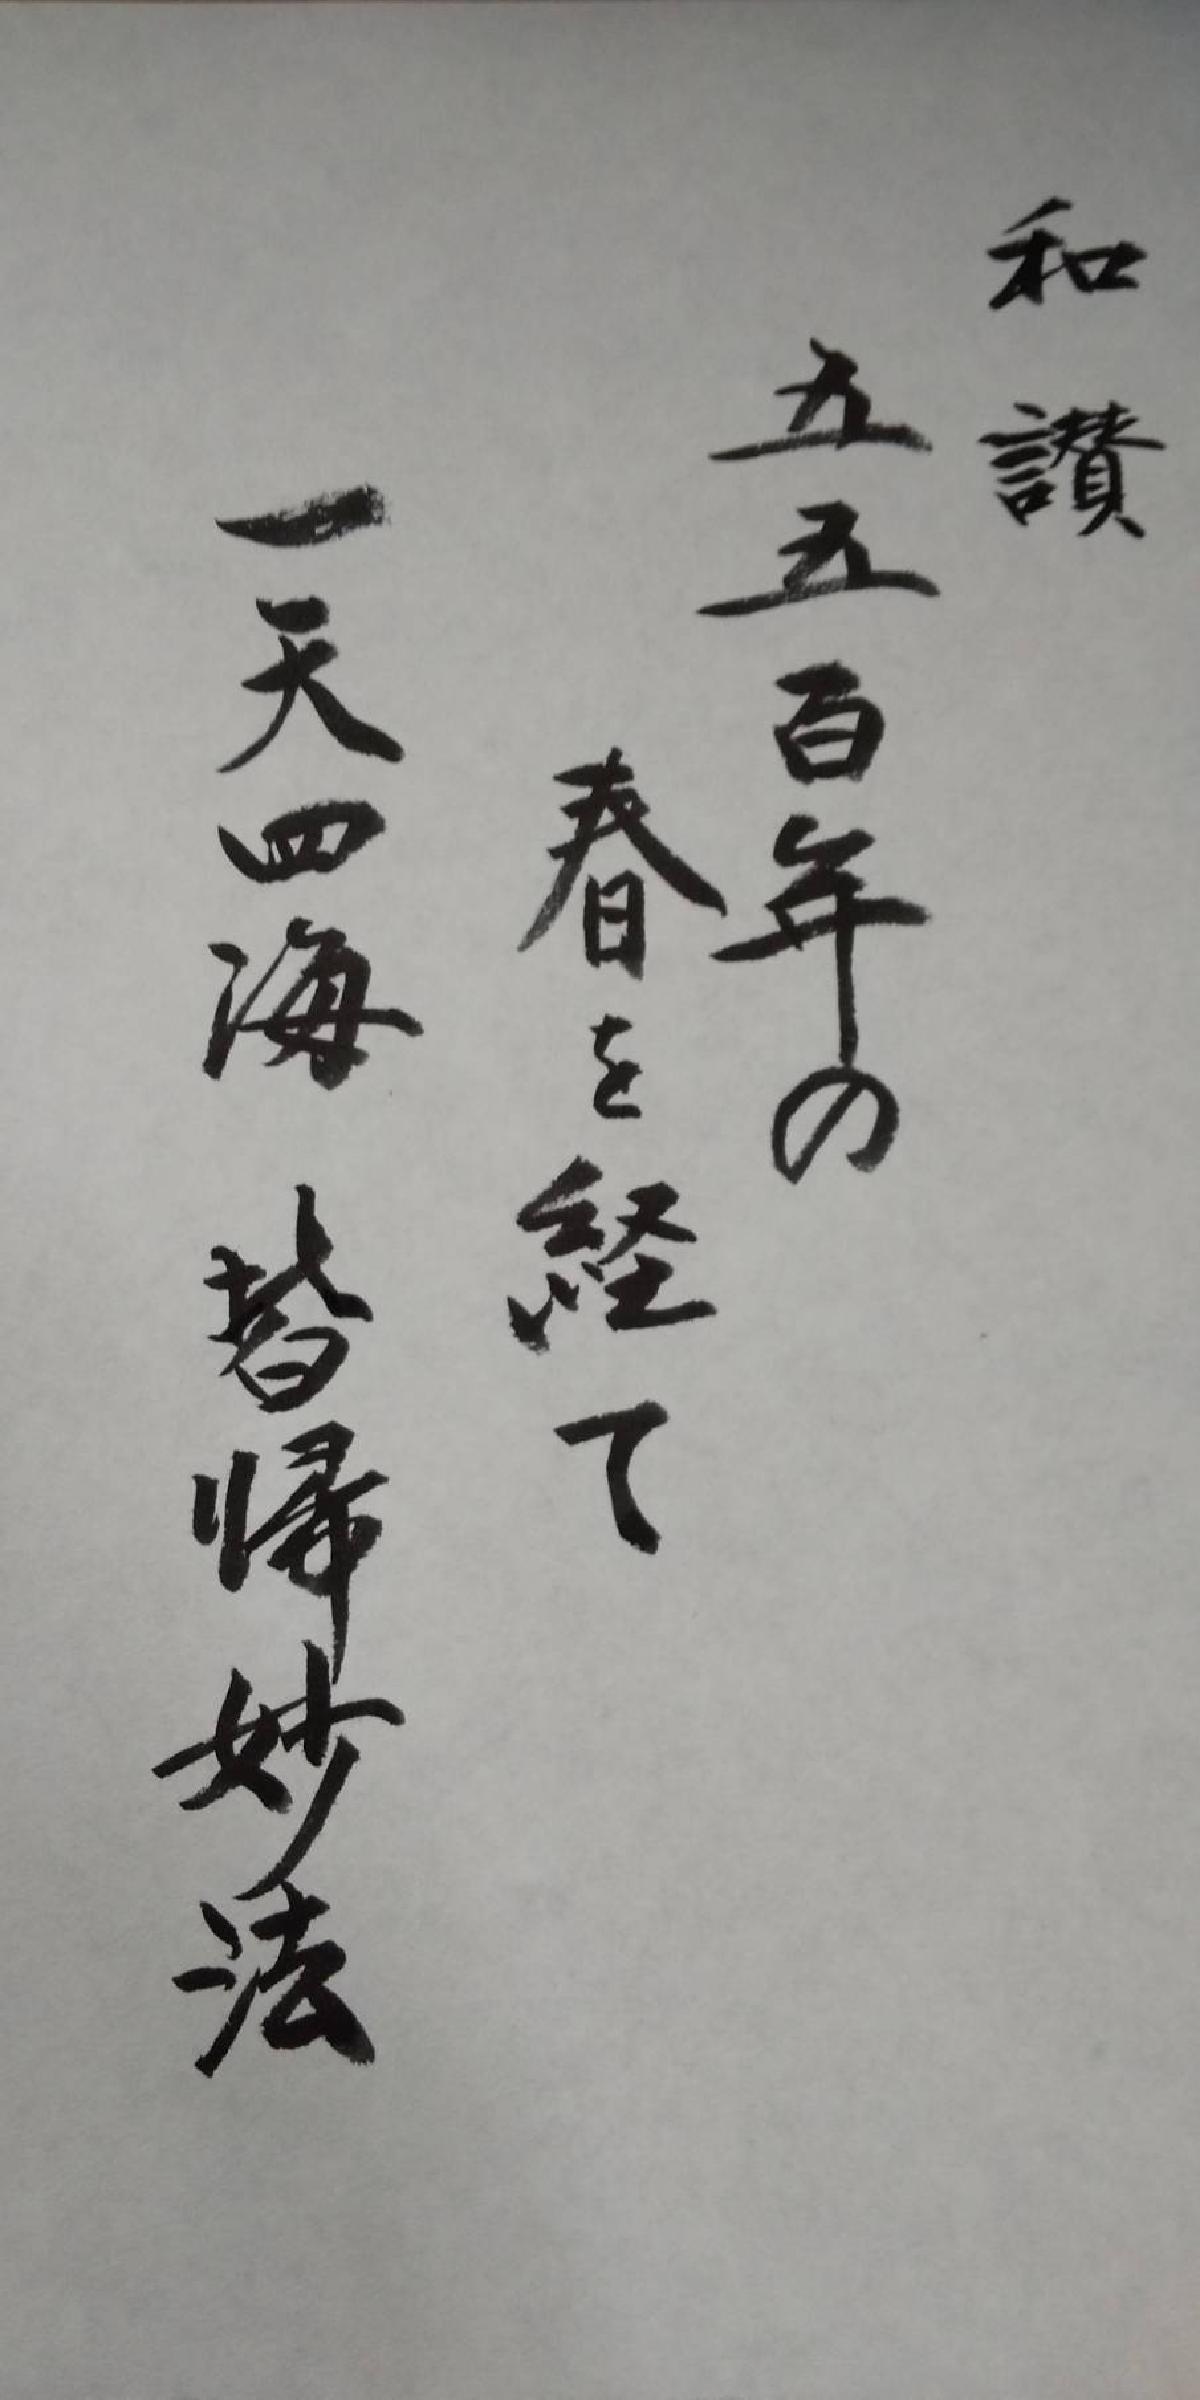 和讃
五五百年の
春を経て
一天四海 皆帰妙法